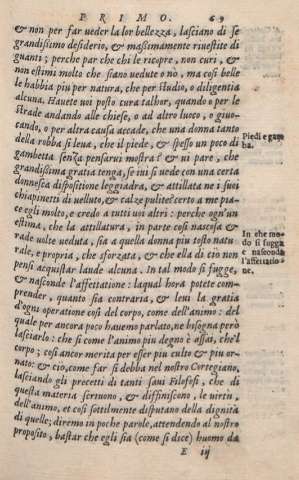 PRIMO. 69
& non per far ueder la lor bellezza, lasciano di se
grandissimo desiderio, & massimamente riuestite di
guanti; perche par che chi le ricopre, non curi, &
non estimi molto che siano uedute o nò, ma cosi belle
le habbia piu per natura, che per studio, o diligentia
alcuna. Hauete uoi posto cura talhor, quando o per le
strade andando alle chiese, o ad altro luoco, o giuo-
cando, o per altra causa accade, che una donna tanto
della robba si leua, che il piede, & spesso un poco di
Piedi e gam
ba.
gambetta senza pensarui mostra? & ui pare, che
grandissima gratia tenga, se iui si uede con una certa
donnesca dispositione leggiadra, & attillata ne i suoi
chiapinetti di uelluto, & calze pulite? certo a me pia-
ce egli molto, e credo a tutti uoi altri: perche ogn'un
estima, che la attillatura, in parte cosi nascosa &
rade uolte ueduta, sia a quella donna piu tosto natu-
In che mo-
do si fugga
e nasconda
l'affettatio
ne.
rale, e propria, che sforzata, & che ella di ciò non
pensi acquistar laude alcuna. In tal modo si fugge,
& nasconde l'affettatione: laqual hora potete com-
prender, quanto sia contraria, & leui la gratia
d'ogni operatione cosi del corpo, come dell'animo: del
quale per ancora poco hauemo parlato, ne bisogna però
lasciarlo: che si come l'animo piu degno è assai, che'l
corpo; cosi ancor merita per esser piu culto & piu or-
nato: & ciò, come far si debba nel nostro Cortegiano,
lasciando gli precetti di tanti saui Filosofi, che di
questa materia scriuono, & diffiniscono, le uirtu
dell'animo, et cosi sottilmente disputano della dignità
di quelle; diremo in poche parole, attendendo al nostro
proposito, bastar che egli sia (come si dice) huomo da
E iij